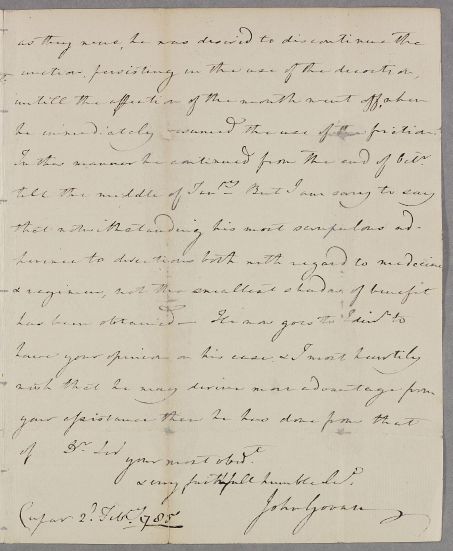 as they were, he was desired to discontinue the
unction, persisting in the use of the decoction,
untill the affection of the mouth went off, when
he immediately resumed the use of the friction.
In this manner he continued from the end of Octr.
till the middle of Janry. But I am sorry to say
that notwithstanding his most scrupulous ad-
herence to directions both with regard to medicine
& regimen, not the smallest shadow of benefit
has been obtained — He now goes to Edinr. to
have your opinion on his case. & I most heartily
wish that he may derive more advantage from
your assistance than he has done from that
of Dr. Sir
your most obedt.
& very faithfull humble Set.
John Govan
Cupar 2d. Febry. 1785